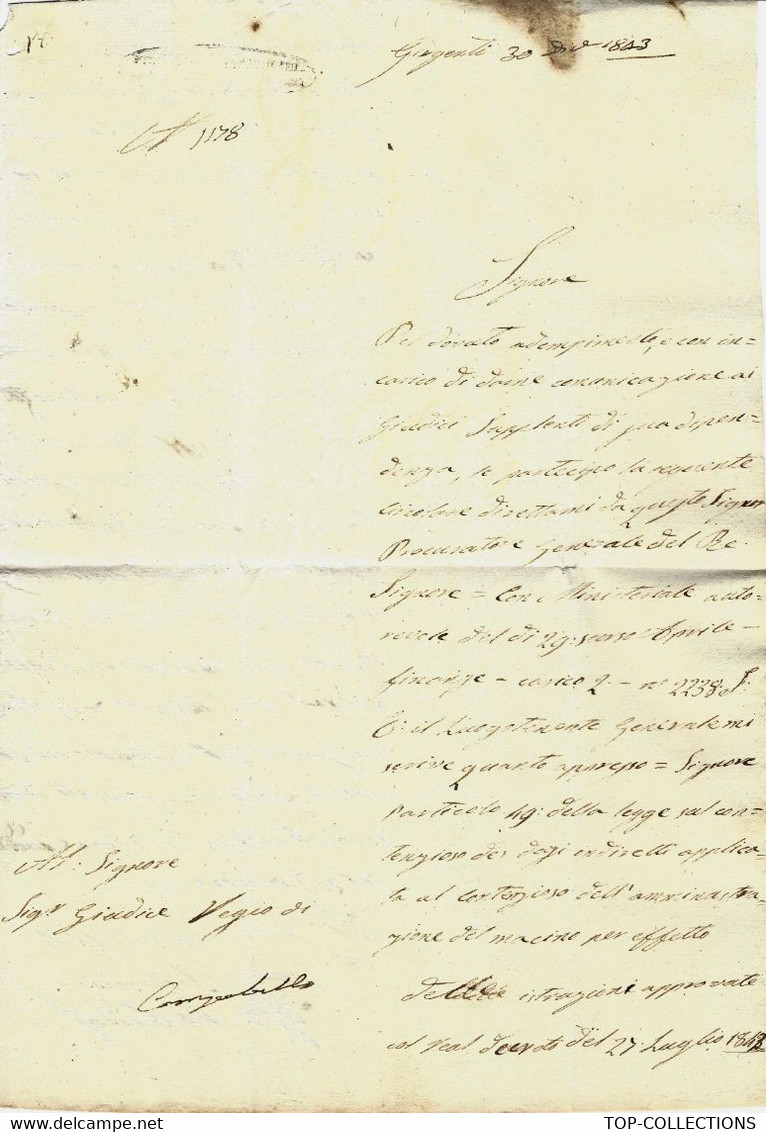 Girgenti 30 1843
N 1178
Signore
Pel dovuto adempimento, e con in=
carico di darne comunicazione ai
Giudici Supplenti di sua dipen=
denza, le partecipo la seguente
circolare direttami da questo Signor
Procuratore Generale del Re.
Signore = Con Ministeriale auto=
revole del di 29: scorso Aprile -
finanze - carico 2. - n° 2238: S:
E: il Luogotenente Generale mi
scrive quanto appresso = Signore
l'articolo 49: della legge sul con=
tenzioso dei dazi indiretti applica=
ta al contenzioso dell'amministra=
zione del macino per effetto
delle istruzioni approvate
col real decreto del 27 Luglio 1843
Al: Signore
Sigr Giudice Regio di
Campobello
TOP-COLLECTIONS